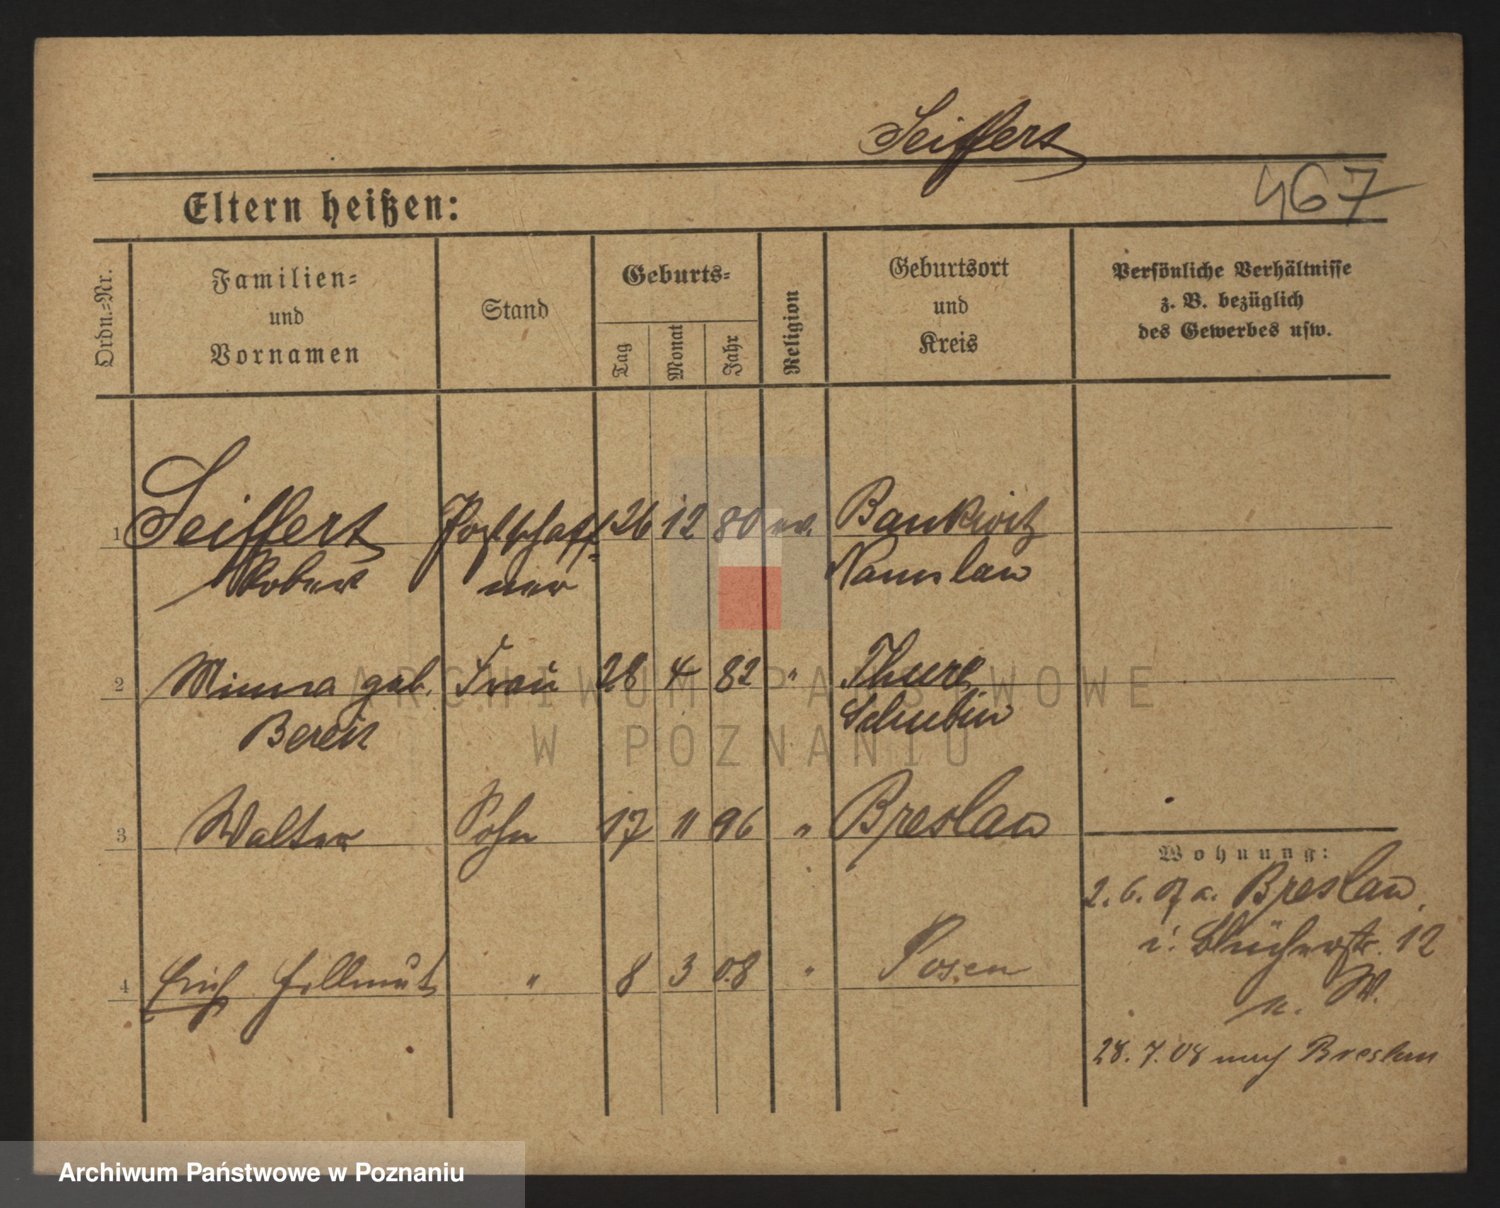 Seiffert
467
Eltern heißen:
Ordn.=Nr.
Familien=
und
Vornamen
Stand
Geburts=
Tag
Monat
Jahr
Religion
Geburtsort
und
Kreis
Persönliche Verhältnisse
z. B. bezüglich
des Gewerbes usw.
1 Seiffert Postschaff= 26 12 80 ev. Bankwitz
Robert ner Namslau
2 Minna geb. Frau 28 4 82 " Thure
Schubin
3 Walter Sohn 17 11 96 " Breslau
Wohnung:
2. 6. 07 a. Breslau,
i. Blücherstr. 12
n. W.
4 Erich Hellmut " 8 3 08 " Posen
28. 7. 08 nach Breslau
ARCHIWUM PAŃSTWOWE
W POZNANIU
Archiwum Państwowe w Poznaniu